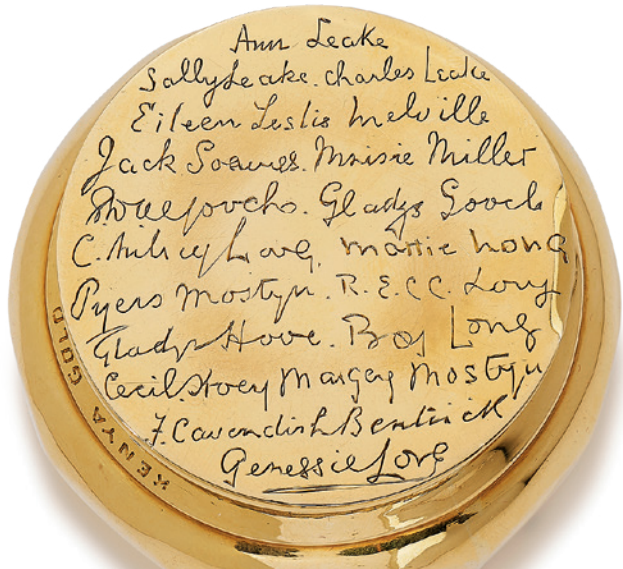 Ann Leake
Sally Leake. Charles Leake
Eileen Leslie Melville
Jack Soames. Maisie Miller
Gladys Gooch
C. Long, Mattie Long
Pyers Mostyn. R.E.C.C. Long
Gladys Hove. Boy Long
Cecil Hoey Margery Mostyn
F. Cavendish Bentinck
Genessie Long
KENYA GOLD